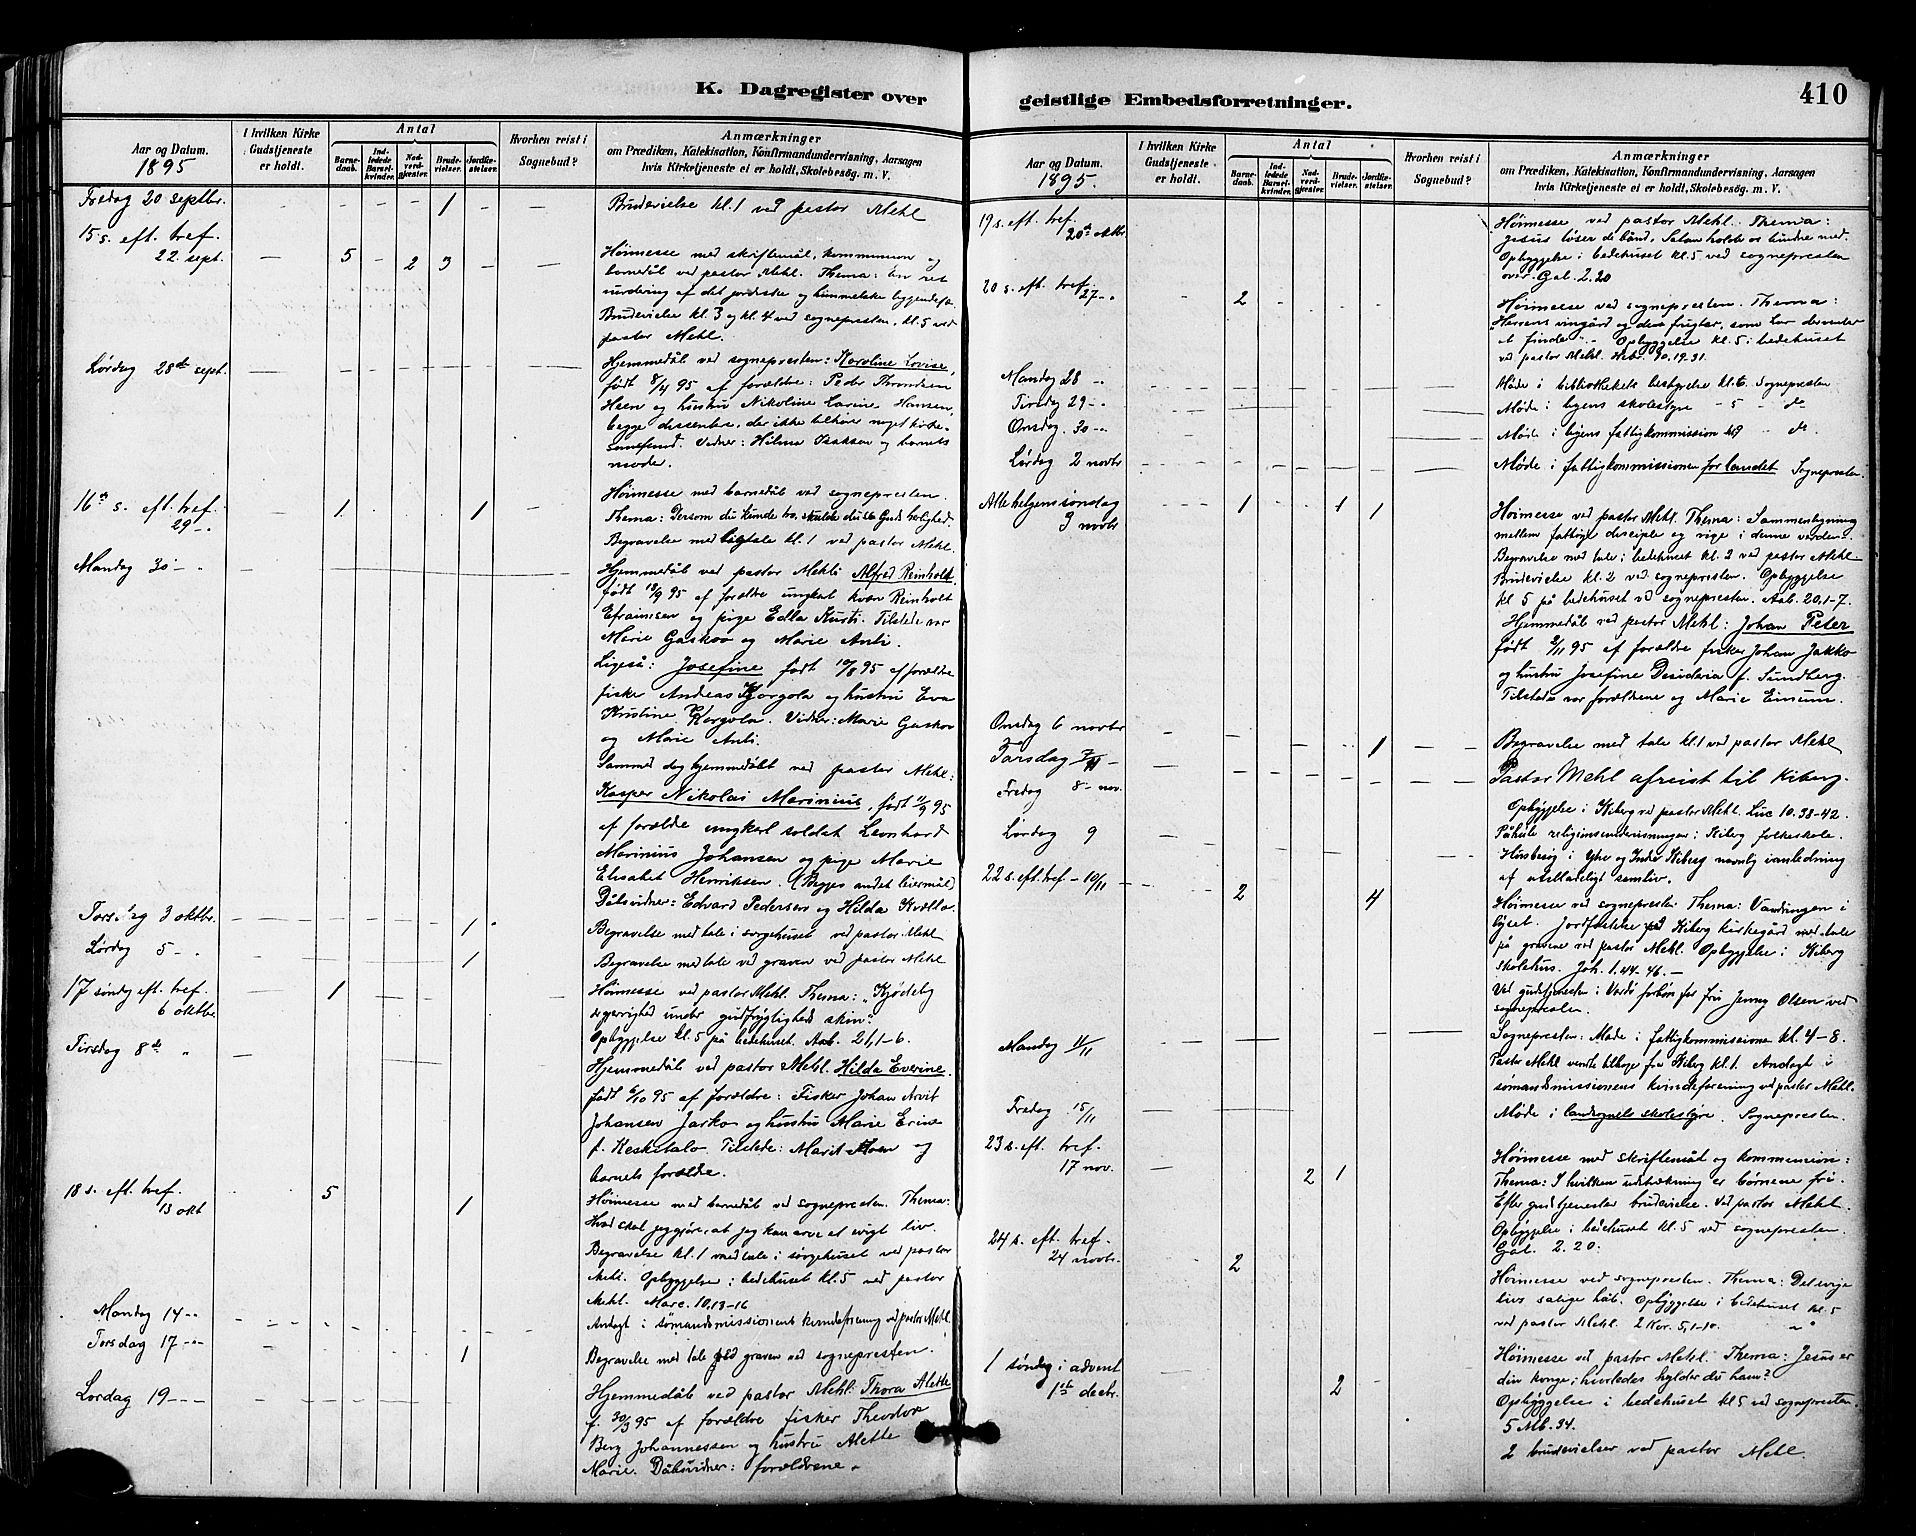 K. Dagregister over geistlige Embedsforretninger.
410
Aar og Datum.
1895
I hvilken Kirke
Gudstjeneste
er holdt.
Antal
Barne-
daab.
Ind-
ledede
Barsel-
kvinder.
Nad-
verd-
gjester.
Brude-
vielser.
Jordfæ-
stelser.
Hvorhen reist i
Sognebud?
Anmærkninger
om Prædiken, Katekisation, Konfirmandundervisning, Aarsagen
hvis Kirketjeneste ei er holdt, Skolebesøg. m. V.
Fredag 20 septbr. - - - 1 - - Brudevielse kl. 1 ved pastor Mehl
15 s. eft. tref.
22. sept. - 5 - 2 3 - - Høimesse med skriftemål, kommunion og
barnedåb ved pastor Mehl. Thema: En ret
vurdering af det jordiske og himmelske
Brudevielse kl. 3 og kl. 4 ved sognepresten, kl. 5 ved
pastor Mehl.
Lørdag 28de sept. Hjemmedåb ved sognepresten: Karoline Lovise,
født 8/4 95 af forældre: Peder Throndsen
Hsen og hustru Nikoline Larine Hansen,
begge dissentere, der ikke tilhører noget kirke-
samfund. Vidner: Hilma Isaksen og barnets
moder.
16de s. eft. tref.
29 - - 1 1 - Høimesse med barnedåb ved sognepresten.
Thema: Dersom du kunde tro, skulde du se Guds herlighed.
Begravelse med ligtale kl. 1 ved pastor Mehl.
Mandag 30 - " Hjemmedåb ved pastor Mehl: Alfred Reinholt,
født 18/9 95 af forældre ungkarl kvæn Reinholt
Efraimsen og pige Edla Kurti. Tilstede var
Marie Gaskoo og Marie Anti.
Ligeså: Josefine født 10/8 95 af forældre
fisker Andreas Korgola og hustru Eva
Kristine Korgola. Vidner: Marie Gaskoo
og Marie Anti.
Samme dag hjemmedåbt ved pastor Mehl:
Kasper Nikolai Marinius, født 11/9 95
af forældre ungkarl soldat Leonhard
Marinius Johansen og pige Marie
Elisabet Henriksen. (Begges andet leiermål)
Dåbsvidner: Edvard Pedersen og Hilda
Torsdag 3 oktbr. 1 - Begravelse med tale i sørgehuset ved pastor Mehl
Lørdag 5 - " 1 Begravelse med tale ved graven ved pastor Mehl
17 søndag eft. tref.
6 oktbr. - 1 - - Høimesse ved pastor Mehl. Thema: "Kjødelig
ærgjerrighed under gudfrygtigheds skin".
Opbyggelse kl. 5 på bedehuset. Aab. 21, 1-6.
Tirsdag 8de " - Hjemmedåb ved pastor Mehl. Hilda Everine,
født 6/10 95 af forældre: Fisker Johan Arvit
Johansen Jarko og hustru Marie Erine
f. Keskitalo Tilstede: Marit Moen og
barnets forældre.
18 s. eft. tref.
13 okt. - 5 1 Høimesse med barnedåb ved sognepresten. Thema:
Hvad skal jeg gjøre, at jeg kan arve et evigt liv.
Begravelse kl. 1 med tale i sørgehuset ved pastor
Mehl. Opbyggelse i bedehuset kl. 5 ved pastor
Mehl. Marc. 10, 13-16
Mandag 14 - " Andagt i sømandsmissionens kvindeforening ved pastor Mehl.
Torsdag 17 - " 1 Begravelse med tale ved graven ved sognepresten.
Lørdag 19 - - - Hjemmedåb ved pastor Mehl: Thora Alette
f. 30/3 95 af forældre fisker Theodor
Berg Johannessen og hustru Alette
Marie. Dåbsvidner: forældrene.
Aar og Datum.
1895.
I hvilken Kirke
Gudstjeneste
er holdt.
Antal
Barne-
daab.
Ind-
ledede
Barsel-
kvinder.
Nad-
verd-
gjester.
Brude-
vielser.
Jordfæ-
stelser.
Hvorhen reist i
Sognebud?
Anmærkninger
om Prædiken, Katekisation, Konfirmandundervisning, Aarsagen
hvis Kirketjeneste ei er holdt, Skolebesøg. m. V.
19 s. eft. tref.
20de oktbr. Høimesse ved pastor Mehl. Thema:
Jesus løser de bånd, Satan holder os bundne med.
Opbyggelse i bedehuset kl. 5 ved sognepresten
over Gal. 2. 20
20 s. eft. tref.
27 - " - 2 - - - - Høimesse ved sognepresten. Thema:
Herrens vingård og dens frugter, som har derunder
at finde. Opbyggelse kl. 5 i bedehuset
ved pastor Mehl. Heb. 10. 19. 31.
Mandag 28 " Møde i bibliothekets bestyrelse kl. 6. Sognepresten
Tirsdag 29 - " Møde i byens skolestyre - 5 - do
Onsdag 30 - " Møde i byens fattigkommission kl 9 " do
Lørdag 2 novbr Møde i fattigkommissionen for landet Sognepresten
Alle helgens søndag
3 novbr 1 - 1 1 Høimesse ved pastor Mehl. Thema: Sammenligning
mellem fattige disciple og rige i denne verden.
Begravelse med tale i bedehuset kl. 2 ved pastor Mehl
Brudevielse kl. 2 ved sognepresten. Opbyggelse
kl 5 på bedehuset ved sognepresten. Aab. 20, 1-7.
Hjemmedåb ved pastor Mehl: Johan Peter
født 2/11 95 af forældre fisker Johan Jakko
og hustru Josefine Desideria f. Sundberg.
Tilstede var forældrene og Marie Einsum.
Onsdag 6 novbr - - - 1 - Begravelse med tale kl. 1 ved pastor Mehl
Torsdag 7/11 - Pastor Mehl afreist til Kiberg.
Fredag 8 - nov. Opbyggelse i Kiberg ved pastor Mehl. Luc 10. 38-42.
Lørdag 9 - Påhørte religionsundervisningen i Kiberg folkeskole.
Husbesøg i Ytre og Indre Kiberg navnlig i anledning
af utilladeligt samliv.
22 s. eft. tref - 10/11 - - 2 4 Høimesse ved sognepresten Thema: Vandringen i
lyset. Jordfæstelse på Kiberg kirkegård med tale
på gravene ved pastor Mehl. Opbyggelse i Kiberg
skolehus. Joh. 1. 44. 46. -
Ved gudstjenesten i Vardø forbøn for fru Jenny Olsen ved
sognepresten.
Mandag 11/11 Sognepresten: Møde i fattigkommissionen kl. 4-8.
Pastor Mehl vendte tilbage fra Kiberg kl. 1. Andagt i
sømandsmissionens kvindeforening ved pastor Mehl.
Fredag 15/11 Møde i landsognets skolestyre. Sognepresten.
23 s. eft. tref.
17 nov. - 2 1 Høimesse med skriftemål og kommunion:
Thema: I hvilken udstrækning er børnene fri.
Efter gudstjenesten brudevielse. Ved pastor Mehl.
Opbyggelse i bedehuset kl. 5 ved sognepresten.
Gal. 2. 20.
24 s. eft. tref.
24 novbr. 2 Høimesse ved sognepresten. Thema: Det evige
livs salige håb. Opbyggelse i bedehuset kl. 5
ved pastor Mehl. 2 Kor. 5, 1-10.
1 søndag i advent
1ste decbr. 2 - Høimesse ved pastor Mehl. Thema: Jesus er
din konge; hvorledes hylder du ham?
Opbyggelse i bedehuset kl 5 ved sognepresten.
5 Mb. 34.
2 brudevielser ved pastor Mehl.